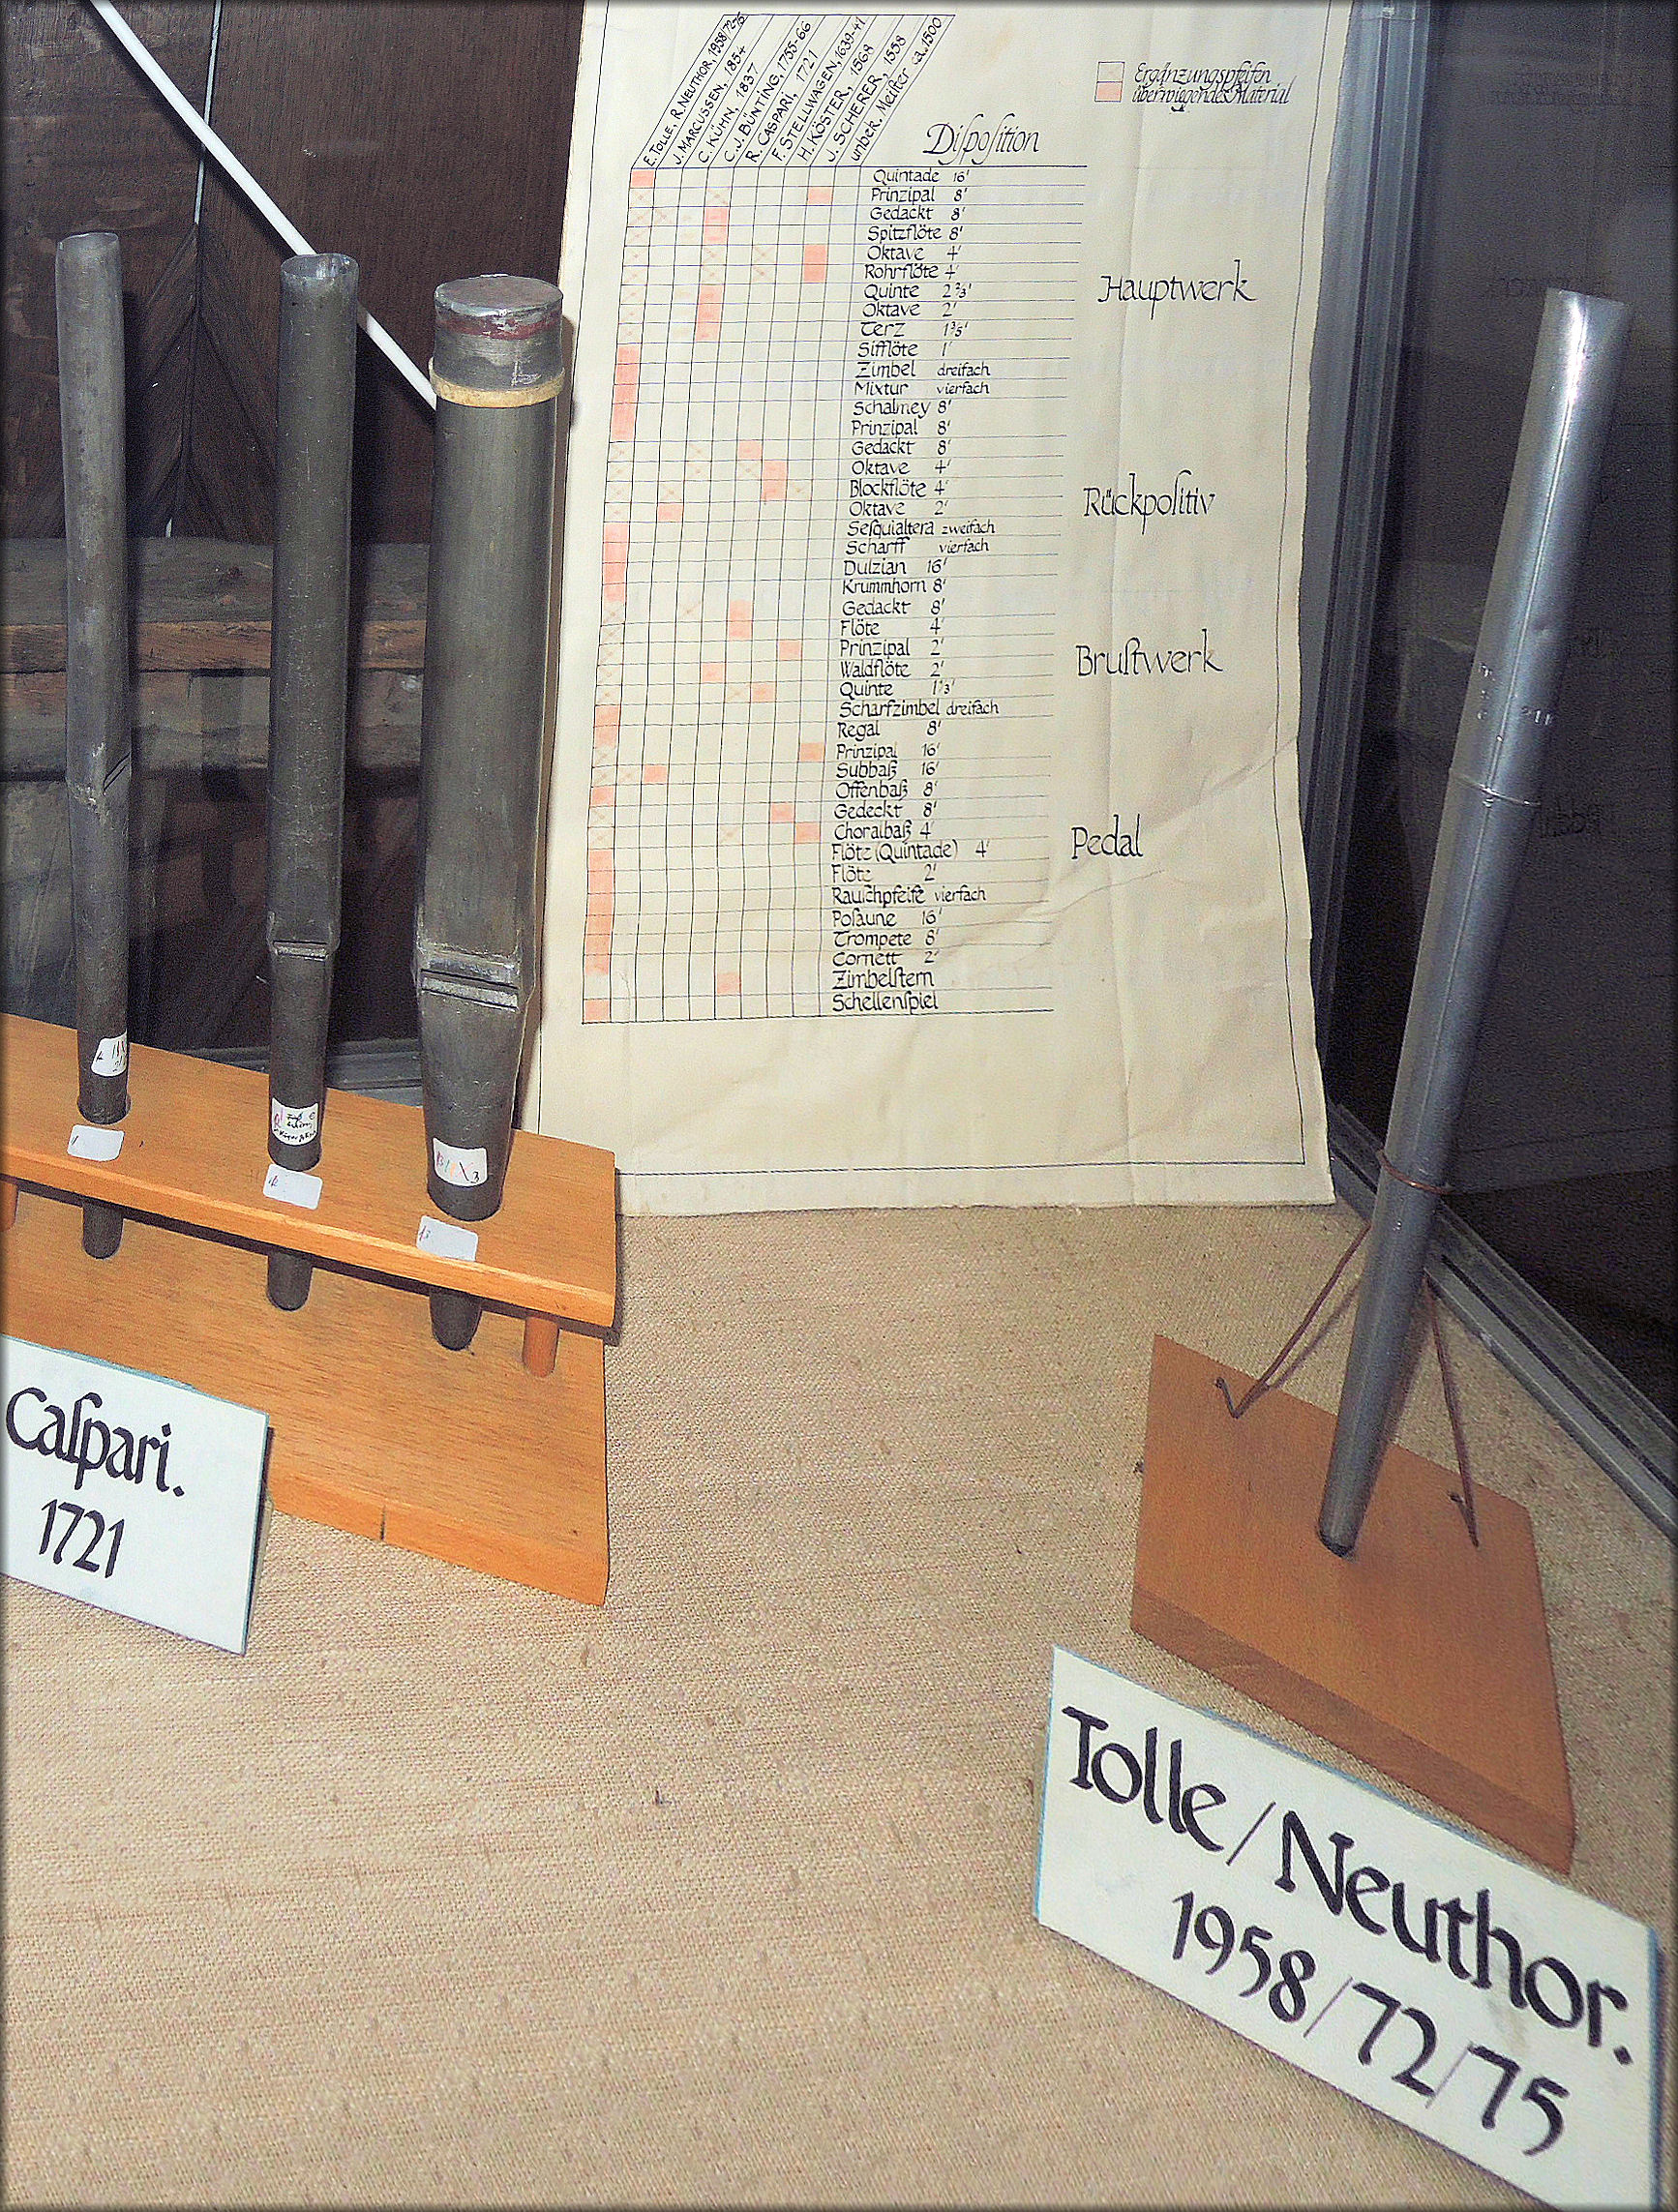 E. TOLLE, R. NEUTHOR, 1958/72/75
J. MARCUSSEN, 1854
C. KÜHN, 1837
C. J. BÜNTING, 1755-66
R. CASPARI, 1721
F. STELLWAGEN, 1639-41
H. KÖSTER, 1568
J. SCHERER, 1558
unbek. Meister ca. 1500
Ergänzungspfeifen
überwiegendes Material
Diſpoſition
Quintade 16'
Prinzipal 8'
Gedackt 8'
Spitzflöte 8'
Oktave 4'
Rohrflöte 4'
Quinte 2 ⅔'
Oktave 2'
Terz 1 ⅗'
Sifflöte 1'
Zimbel dreifach
Mixtur vierfach
Schalmey 8'
Hauptwerk
Prinzipal 8'
Gedackt 8'
Oktave 4'
Blockflöte 4'
Oktave 2'
Seſquialtera zweifach
Scharff vierfach
Dulzian 16'
Krummhorn 8'
Rückpoſitiv
Gedackt 8'
Flöte 4'
Prinzipal 2'
Waldflöte 2'
Quinte 1 ⅓'
Scharfzimbel dreifach
Regal 8'
Bruſtwerk
Prinzipal 16'
Subbaß 16'
Offenbaß 8'
Gedeckt 8'
Choralbaß 4'
Flöte (Quintade) 4'
Flöte 2'
Rauſchpfeife vierfach
Poſaune 16'
Trompete 8'
Cornett 2'
Pedal
Zimbelſtern
Schellenſpiel
Caſpari.
1721
Tolle/Neuthor.
1958/72/75